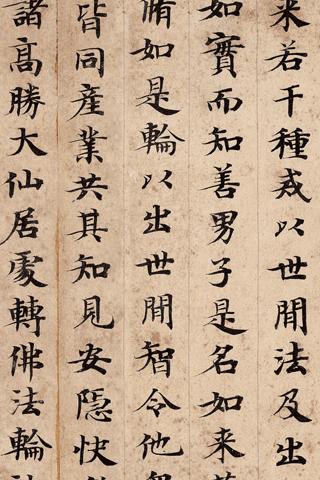 来若干種或以世間法及出
如實而知善男子是名如来
脩如是輪以出世間智令他
皆同産業共其知見安隱快
諸髙勝大仙居處轉佛法輪